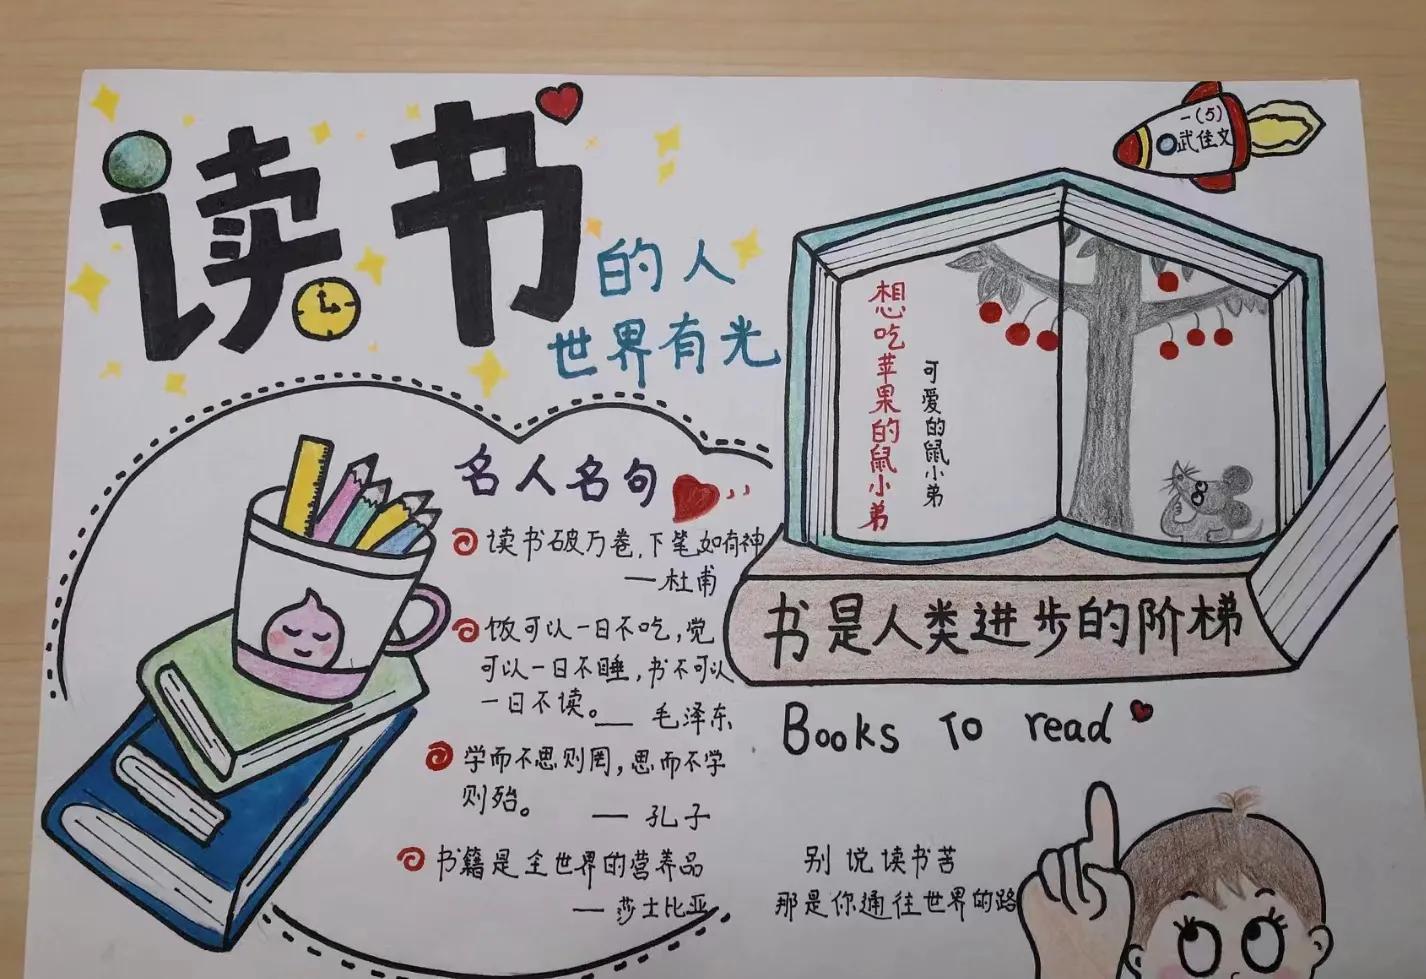 读书
的人
世界有光
一(5)
武佳文
想吃苹果的鼠小弟
可爱的鼠小弟
名人名句
读书破万卷,下笔如有神
—杜甫
饭可以一日不吃,觉
可以一日不睡,书不可以
一日不读。— 毛泽东
学而不思则罔,思而不学
则殆。
— 孔子
书籍是全世界的营养品
— 莎士比亚
书是人类进步的阶梯
Books To read
别说读书苦
那是你通往世界的路